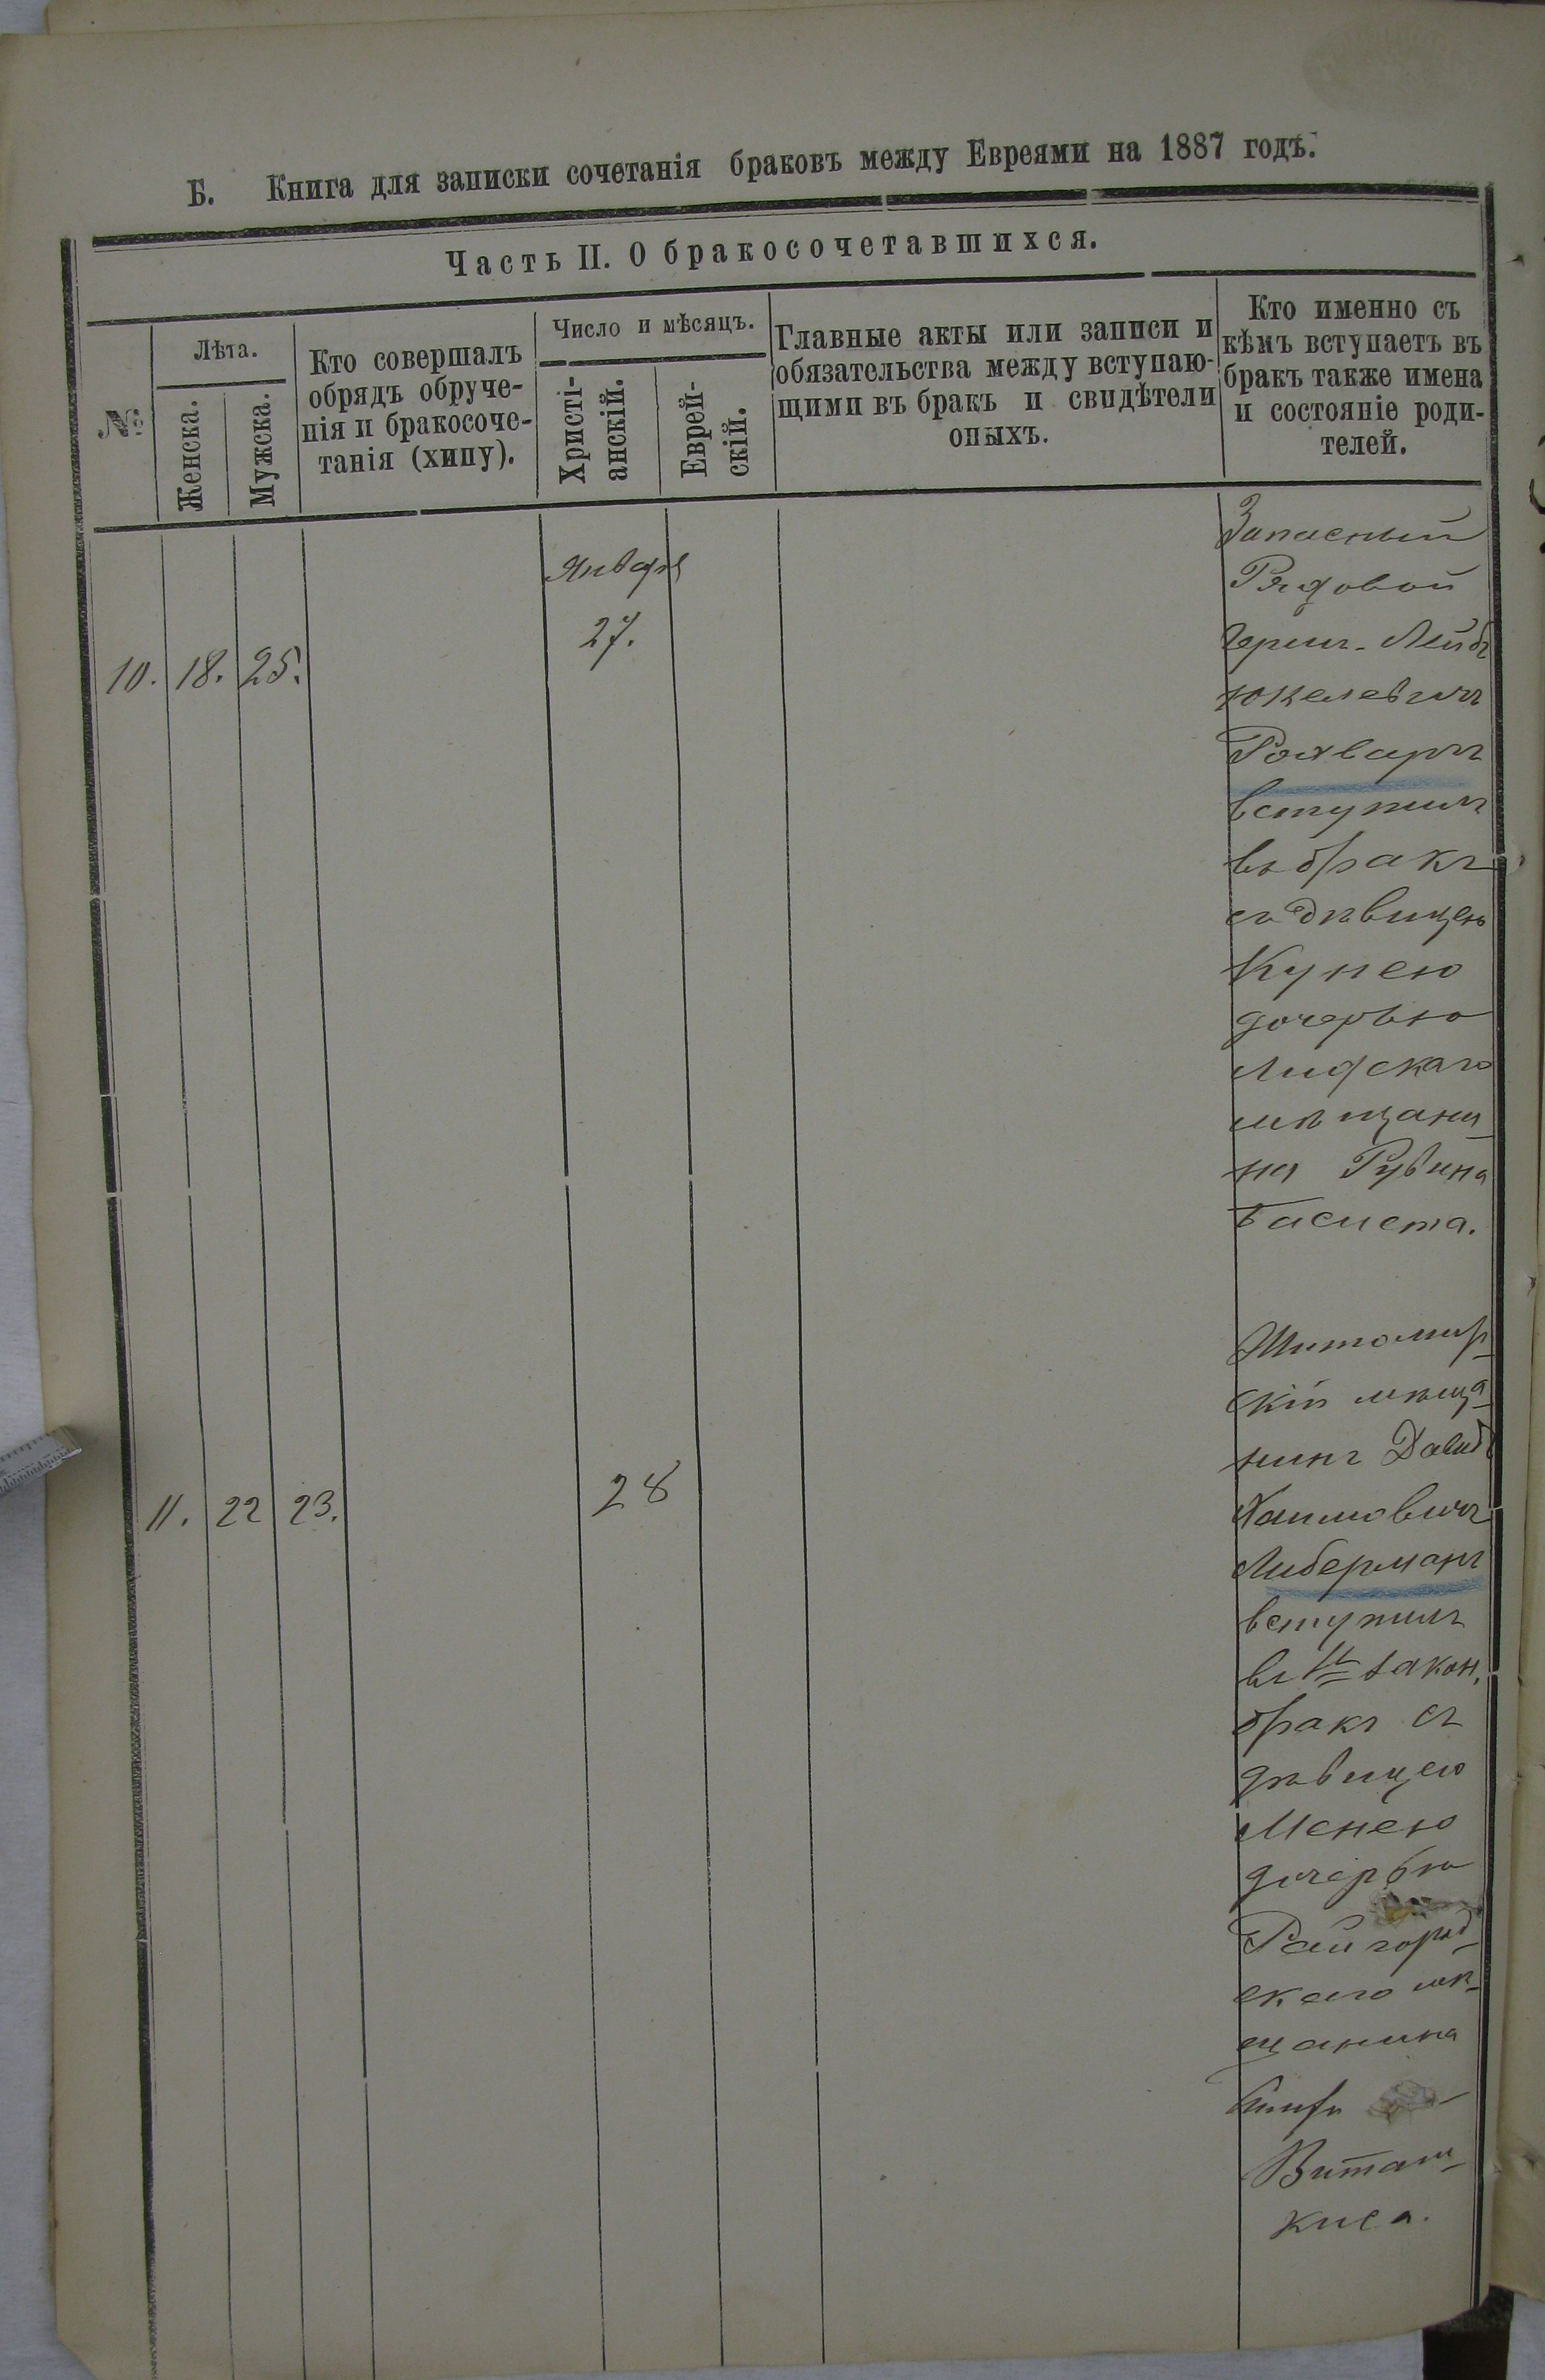 Б. Книга для записки сочетанія браковъ между Евреями на 1887 годъ.
Часть II. О бракосочетавшихся.
№
Лѣта.
Женска.
Мужска.
Кто совершалъ
обрядъ обруче-
нія и бракосоче-
танія (хипу).
Число и мѣсяцъ.
Христі-
анскій.
Еврей-
скій.
Главные акты или записи и
обязательства между вступаю-
щими въ бракъ и свидѣтели
оныхъ.
Кто именно съ
кѣмъ вступаетъ въ
бракъ также имена
и состояніе роди-
телей.
10. 18. 25.
Января
27.
Запасный
Рядовой
Герш-Лейбъ
Юкелевичъ
Рохваргъ
вступилъ
въ бракъ
съ дѣвицею
Кунею
дочерью
Лидскаго
мѣщани-
на Рувина
Басиста.
11. 22 23.
28
Житомир-
скій мѣща-
нинъ Давидъ
Хаимовичъ
Либерманъ
вступилъ
въ 1й закон.
бракъ съ
дѣвицею
Менею
дочерью
Райгород-
скаго мѣ-
щанина
Виташ-
киса.